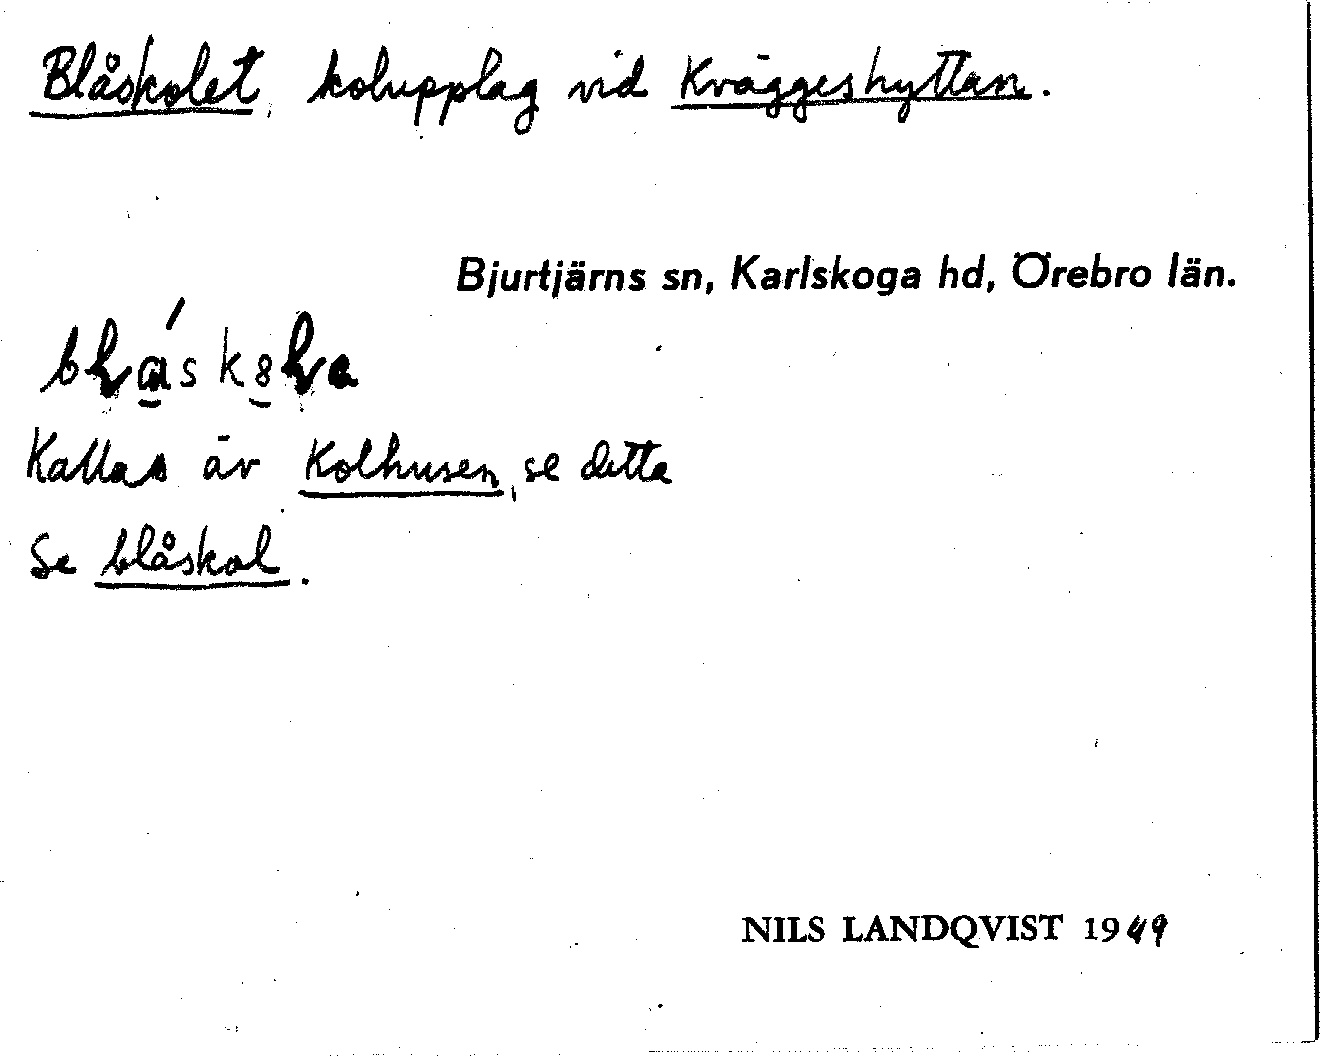 Blåskolet, kolupplag vid Kväggeshyttan.
Bjurtjärns sn, Karlskoga hd, Örebro län.
Kallas äv Kolhusen, se detta
Se blåskol.
NILS LANDQVIST 1949